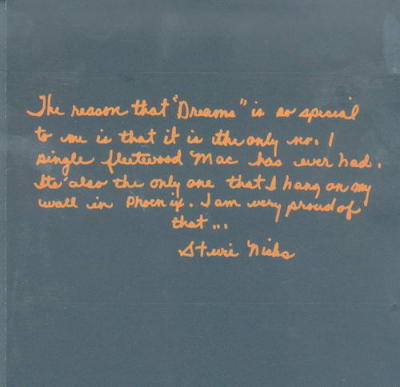 The reason that "Dreams" is so special
to me is that it is the only no. 1
single fleetwood Mac has ever had.
Its also the only one that I hang on my
wall in Phoenix. I am very proud of
that...
Stevie Nicks